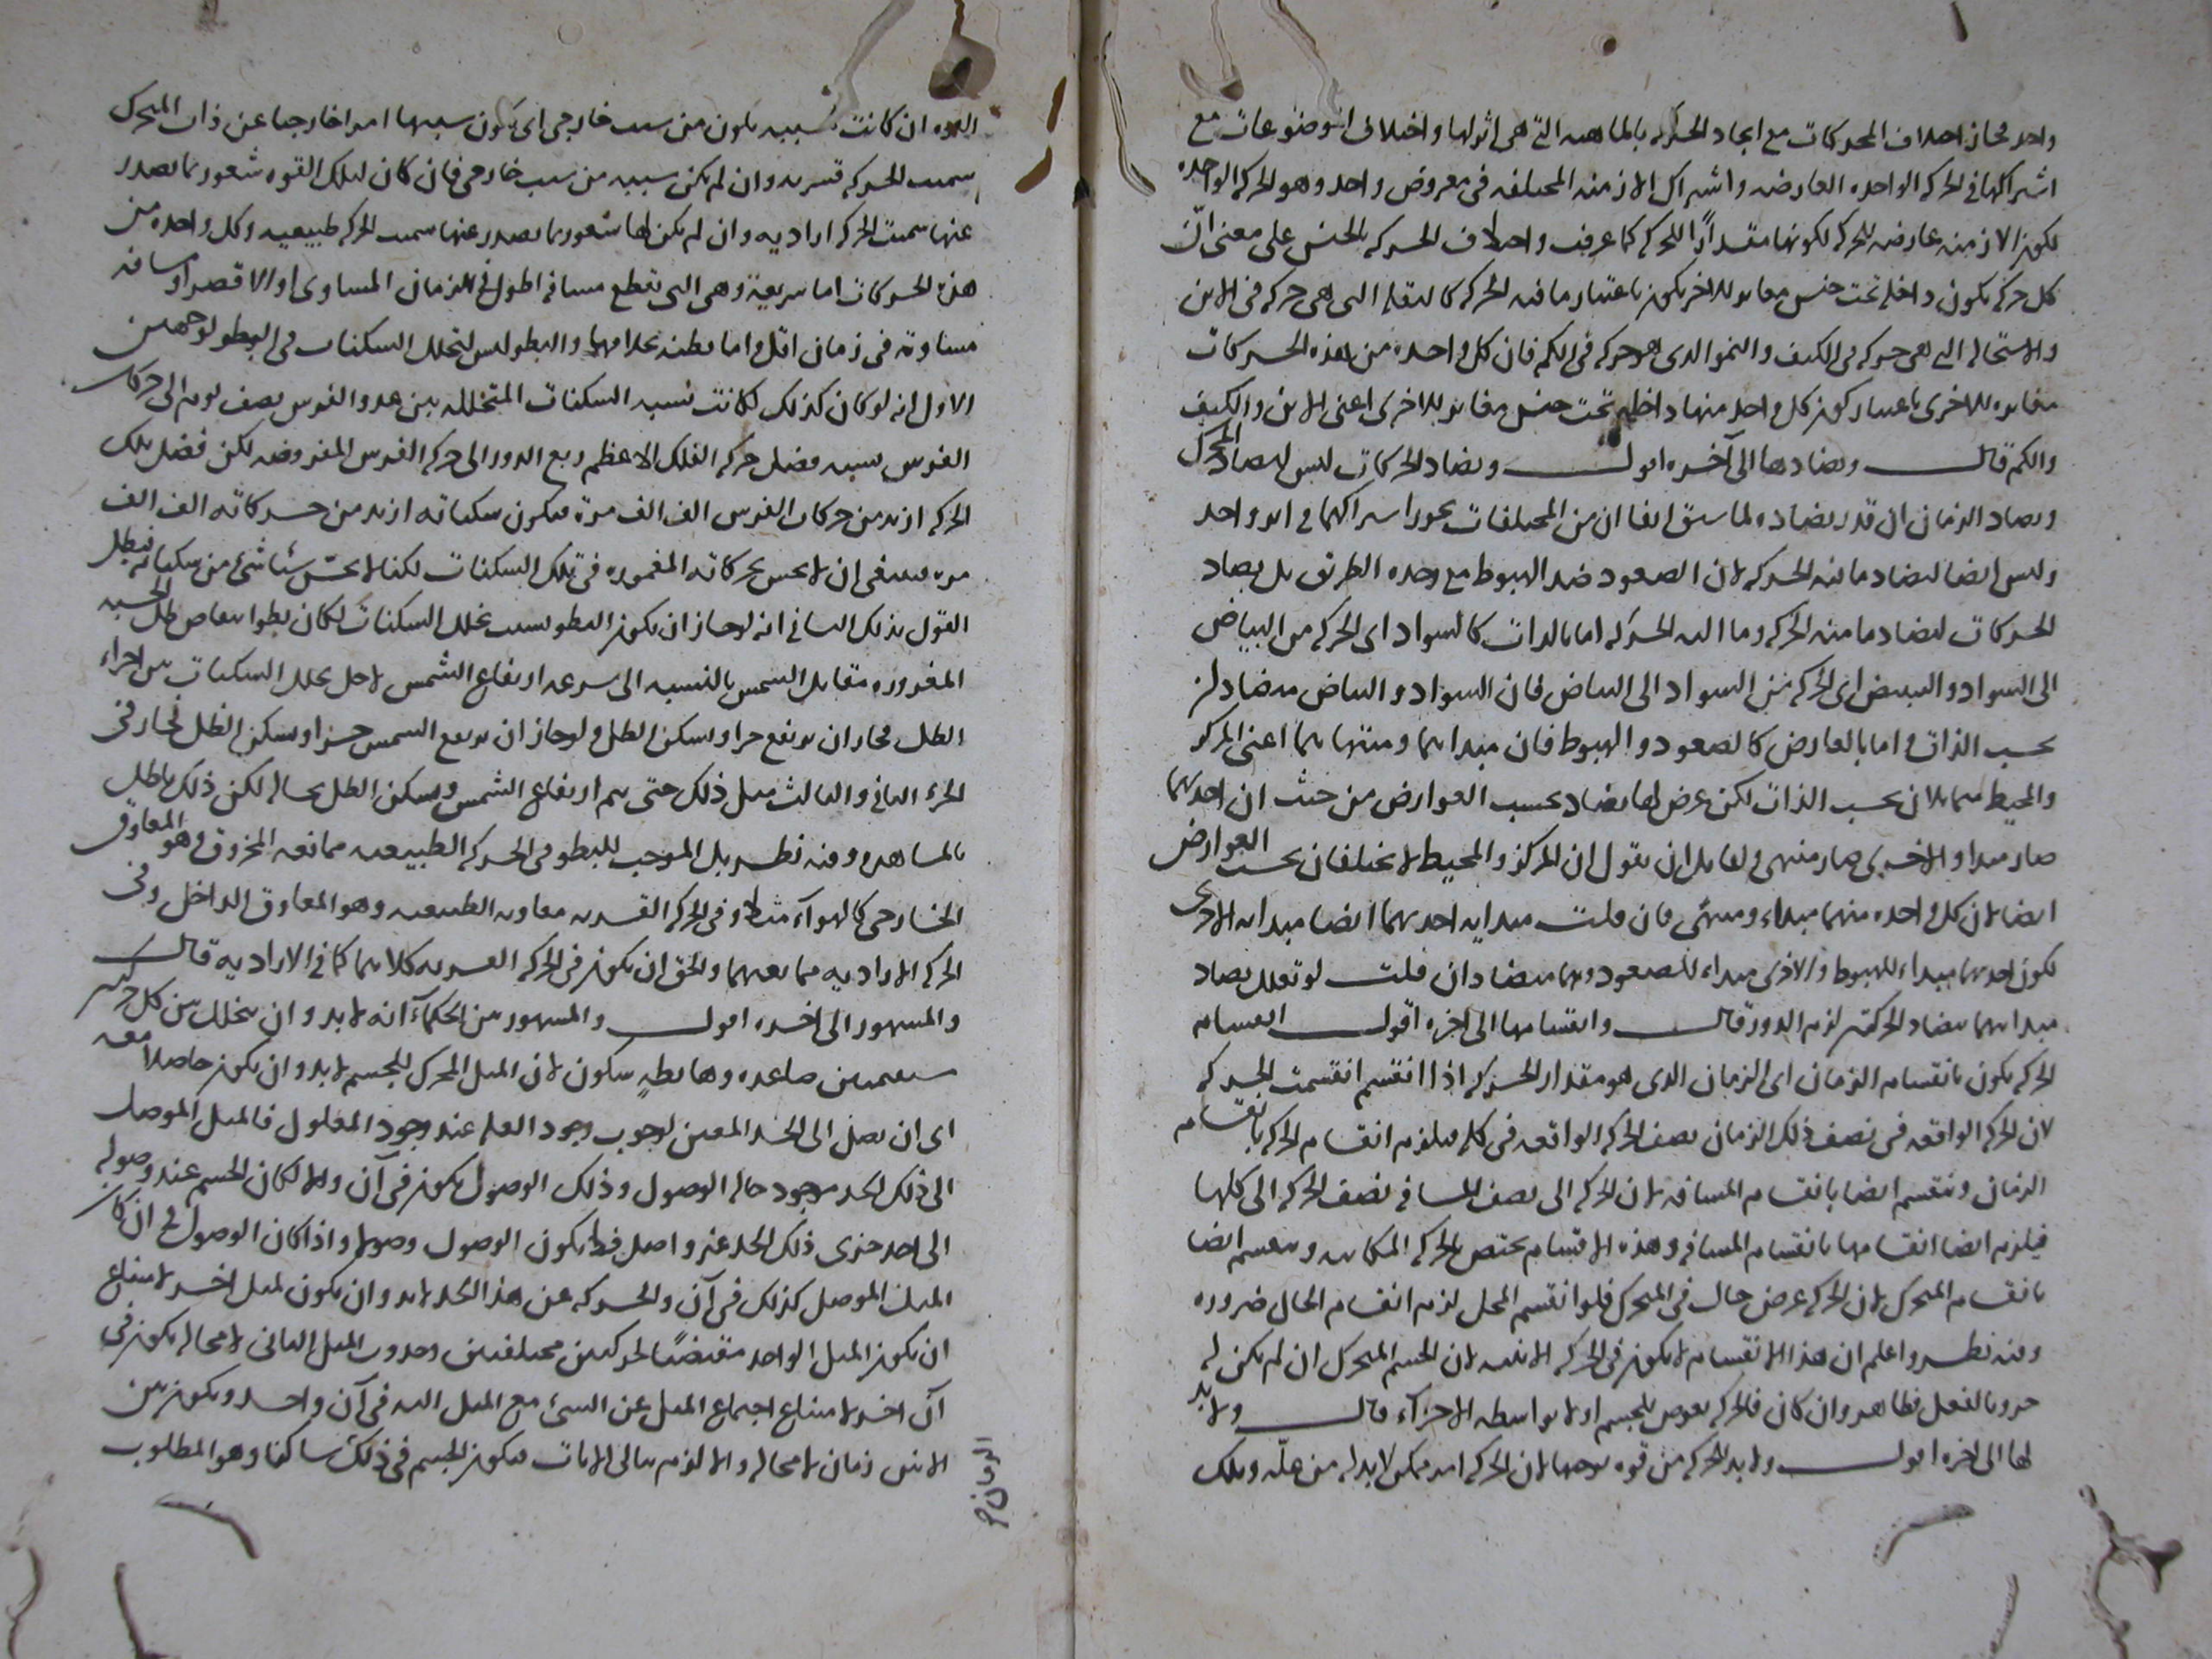 واحد فجاز اختلاف المحركات مع اتحاد الحركة بالماهية التي هي اثرلها واختلاف الموضوعات مع
اشتراكها في الحركة الواحدة العارضة واشتراك الازمنة المختلفة في معروض واحد وهو الحركة الواحدة
لكون الازمنة عارضة للحركة لكونها مقدارًا للحركة كما عرفت واختلاف الحركة بالجنس على معنى انّ
كل حركة يكون داخلة تحت جنس مغاير للاخر يكون باعتبار ما فيه الحركة كالنقلة التي هي حركة في الاين
والاستحالة التي هي حركة في الكيف والنمو الذي هو حركة في الكم فان كل واحدة من هذه الحركات
مغايرة للاخرى باعتبار كون كل واحد منها داخلة تحت جنس مغاير للاخرى اعني الاين والكيف
والكم قال وتضادها الى آخره اقول وتضاد الحركات ليس لتضاد المحرك
وتضاد الزمان ان قدر تضاده لما سبق انفا ان من المختلفات يجوز اشتراكهما في امر واحد
وليس ايضا لتضاد ما فيه الحركة لان الصعود ضد الهبوط مع وحدة الطريق بل تضاد
الحركات لتضاد ما منه الحركة وما اليه الحركة اما بالذات كالسواد اى الحركة من البياض
الى السواد والتبييض اى الحركة من السواد الى البياض فان السواد والبياض متضادان
بحسب الذات واما بالعارض كالصعود والهبوط فان مبداهما ومنتهاهما اعني المركز
والمحيط متماثلان بحسب الذات لكن عرض لهما تضاد بحسب العوارض من حيث ان احدهما
صار مبدا والاخرى صار منتهى ولقايل ان يقول ان المركز والمحيط لا يختلفان بحسب العوارض
ايضا لان كل واحدة منهما مبداء ومنتهى فان قلت مبداية احدهما ايضا مبداية الاخرى
لكون احدهما مبداء للهبوط والاخرى مبداء للصعود وهما متضادان قلت لو تعلل تضاد
مبداهما بتضاد الحركتين لزم الدور قال وانقسامها الى اخره اقول انقسام
الحركة يكون بانقسام الزمان اى الزمان الذي هو مقدار الحركة اذا انقسم انقسمت الحركة
لان الحركة الواقعة في نصف ذلك الزمان نصف الحركة الواقعة في كله فيلزم انقسام الحركة بانقسام
الزمان وينقسم ايضا بانقسام المسافة لان الحركة الى نصف المسافة نصف الحركة الى كلها
فيلزم ايضا انقسامها بانقسام المسافة وهذه الاقسام يختص بالحركة المكانية وينقسم ايضا
بانقسام المتحرك لان الحركة عرض حال في المتحرك فلو انقسم المحل لزم انقسام الحال ضرورة
وفيه نظر واعلم ان هذا الانقسام لا يكون في الحركة الاينية لان الجسم المتحرك ان لم يكن له
جزو بالفعل فظاهر وان كان فالحركة يعرض للجسم اولا بواسطة الاجزاء قال ولا بد
لها الى اخره اقول ولا بد للحركة من قوة توجبها لان الحركة امر ممكن لا بد له من علّة وتلك
القوة ان كانت بسببه يكون من سبب خارجي اى يكون سببها امرا خارجيا عن ذات المتحرك
سميت الحركة قسرية وان لم يكن سببه من سبب خارجي فان كان لتلك القوة شعور بما يصدر
عنها سميت الحركة ارادية وان لم يكن لها شعور بما يصدر عنها سميت الحركة طبيعية وكل واحدة من
هذه الحركات اما سريعة وهي التي تقطع مسافة اطول في الزمان المساوى او الاقصر او مسافة
مساوية في زمان اقل واما بطيئة بخلافها والبطو ليس لتخلل السكنات في البطو لوجهين
الاول انه لو كان كذلك لكانت نسبة السكنات المتخللة بين عدو الفرس نصف يوم الى حركات
الفرس نسبة فضل حركة الفلك الاعظم ربع الدور الى حركة الفرس المفروضة لكن فضل تلك
الحركة ازيد من حركات الفرس الف الف مرة فيكون سكناته ازيد من حركاته الف الف
مرة فينبغي ان لا يحس بحركاته المغمورة في تلك السكنات لكنا لا نحسّ شيئا شيء من سكناته فبطل
القول بذلك الثاني انه لو جاز ان يكون البطو بسبب تخلل السكنات لكان بطو انتقاص ظل الخشبة
المغروزة مقابل الشمس بالنسبة الى سرعة ارتفاع الشمس لاجل تخلل السكنات بين اجزاء
الظل فجاز ان يرتفع جزا ويسكن الظل ولو جاز ان يرتفع الشمس جزا ويسكن الظل لجاز في
الجزء الثاني والثالث مثل ذلك حتى يتم ارتفاع الشمس ويسكن الظل بحاله لكن ذلك باطل
بالمشاهدة وفيه نظر بل الموجب للبطو في الحركة الطبيعية ممانعة المخروق وهو المعاوق
الخارجي كالهواء مثلا وفي الحركة القسرية معاوقة الطبيعة وهو المعاوق الداخل وفي
الحركة الارادية ممانعتهما والحق ان يكون في الحركة القسرية كلاهما كما في الارادية قال
والمشهور الى اخره اقول والمشهور من الحكماء انه لا بد وان يتخلل بين كل حركتين
مستقيمتين صاعدة وهابطةٍ سكون لان الميل المحرك للجسم لا بد وان يكون حاصلا معه
اى ان يصل الى الحد المعين لوجوب وجود العلة عند وجود المعلول فالميل الموصل
الى ذلك الحد موجود حالة الوصول وذلك الوصول يكون في آن والا لكان الجسم عند وصوله
الى احد جزى ذلك الحد غير واصل فلا يكون الوصول وصولا واذا كان الوصول في ان كان
الميل الموصل كذلك في آن والحركة عن هذا الحد لا بد وان يكون لميل اخر لامتناع
ان يكون الميل الواحد مقتضيًا لحركتين مختلفتين وحدوث الميل الثاني لا محالة يكون في
آن اخر لامتناع اجتماع الميل عن الشيء مع الميل اليه في آن واحد ويكون بين
الانين زمان لا محالة والا لزم تتالى الانات فيكون الجسم في ذلك ساكنا وهو المطلوب
الزمان